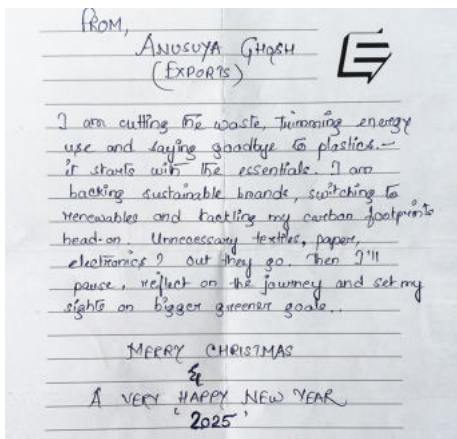 FROM,
ANUSUYA GHOSH
(EXPORTS)
I am cutting the waste, trimming energy
use and saying goodbye to plastics.-
it starts with the essentials. I am
backing sustainable brands, switching to
renewables and tackling my carbon footprints
head-on. Unnecessary textiles, paper,
electronics? out they go. Then I'll
pause, reflect on the journey and set my
sights on bigger greener goals..
MERRY CHRISTMAS
&
A VERY HAPPY NEW YEAR
'2025'